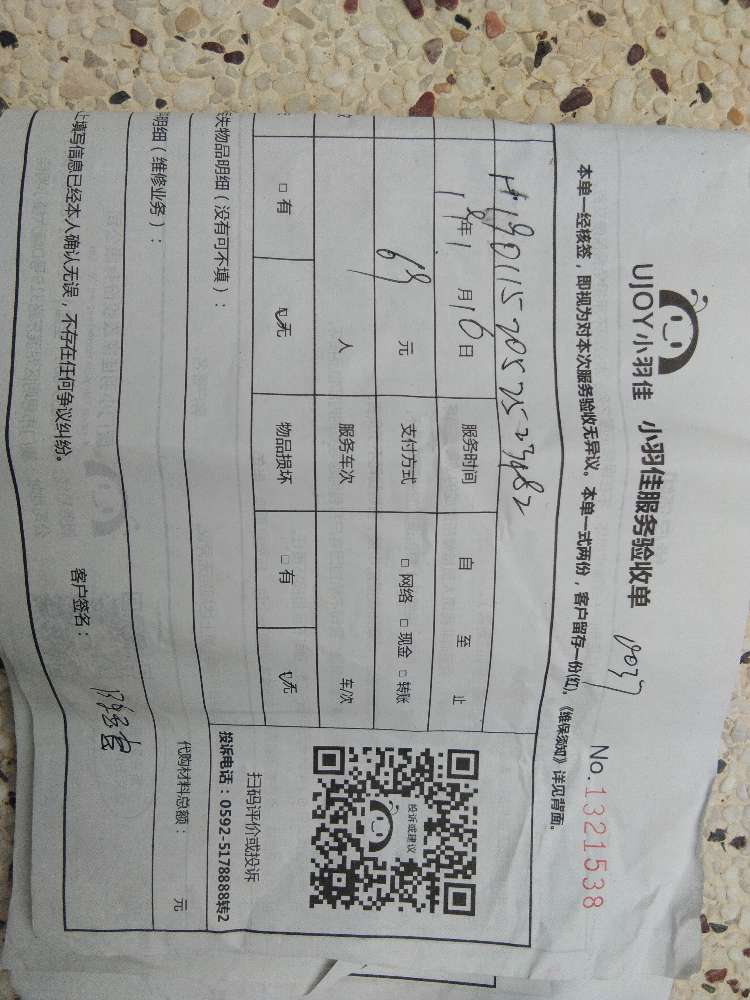 UJOY小羽佳 小羽佳服务验收单
No.1321538
本单一经核签，即视为对本次服务验收无异议。本单一式两份，客户留存一份(红)。《维保须知》详见背面。
服务时间 自 至 止
年1月16日
69元 支付方式 □ 网络 □ 现金 □ 转账
人 服务车次 车/次
□ 有 □ 无 物品损坏 □ 有 □ 无
投诉或建议
扫码评价或投诉
投诉电话：0592-5178888转2
失物品明细（没有可不填）：
明细（维修业务）：
代购材料总额： 元
填写信息已经本人确认无误，不存在任何争议纠纷。
客户签名：